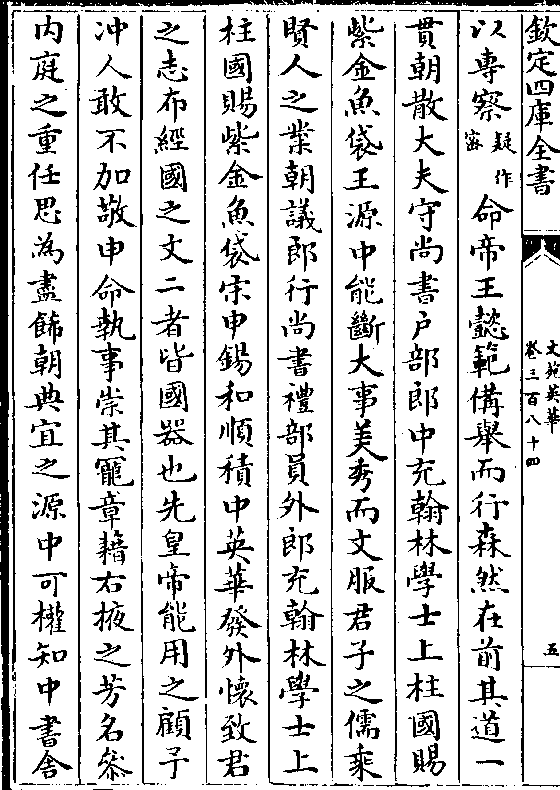 欽定四庫全書
文苑英華
卷三百八十四
五
以專察疑作密命帝王懿範備舉而行森然在前其道一
貫朝散大夫守尚書戶部郎中充翰林學士上柱國賜
紫金魚袋王源中能斷大事美秀而文服君子之儒乘
賢人之業朝議郎行尚書禮部員外郎充翰林學士上
柱國賜紫金魚袋宋申錫和順積中英華發外懷致君
之志布經國之文二者皆國器也先皇帝能用之顧予
冲人敢不加敬申命執事崇其寵章藉右掖之芳名叅
内庭之重任思為盡飾朝典宜之源中可權知中書舍